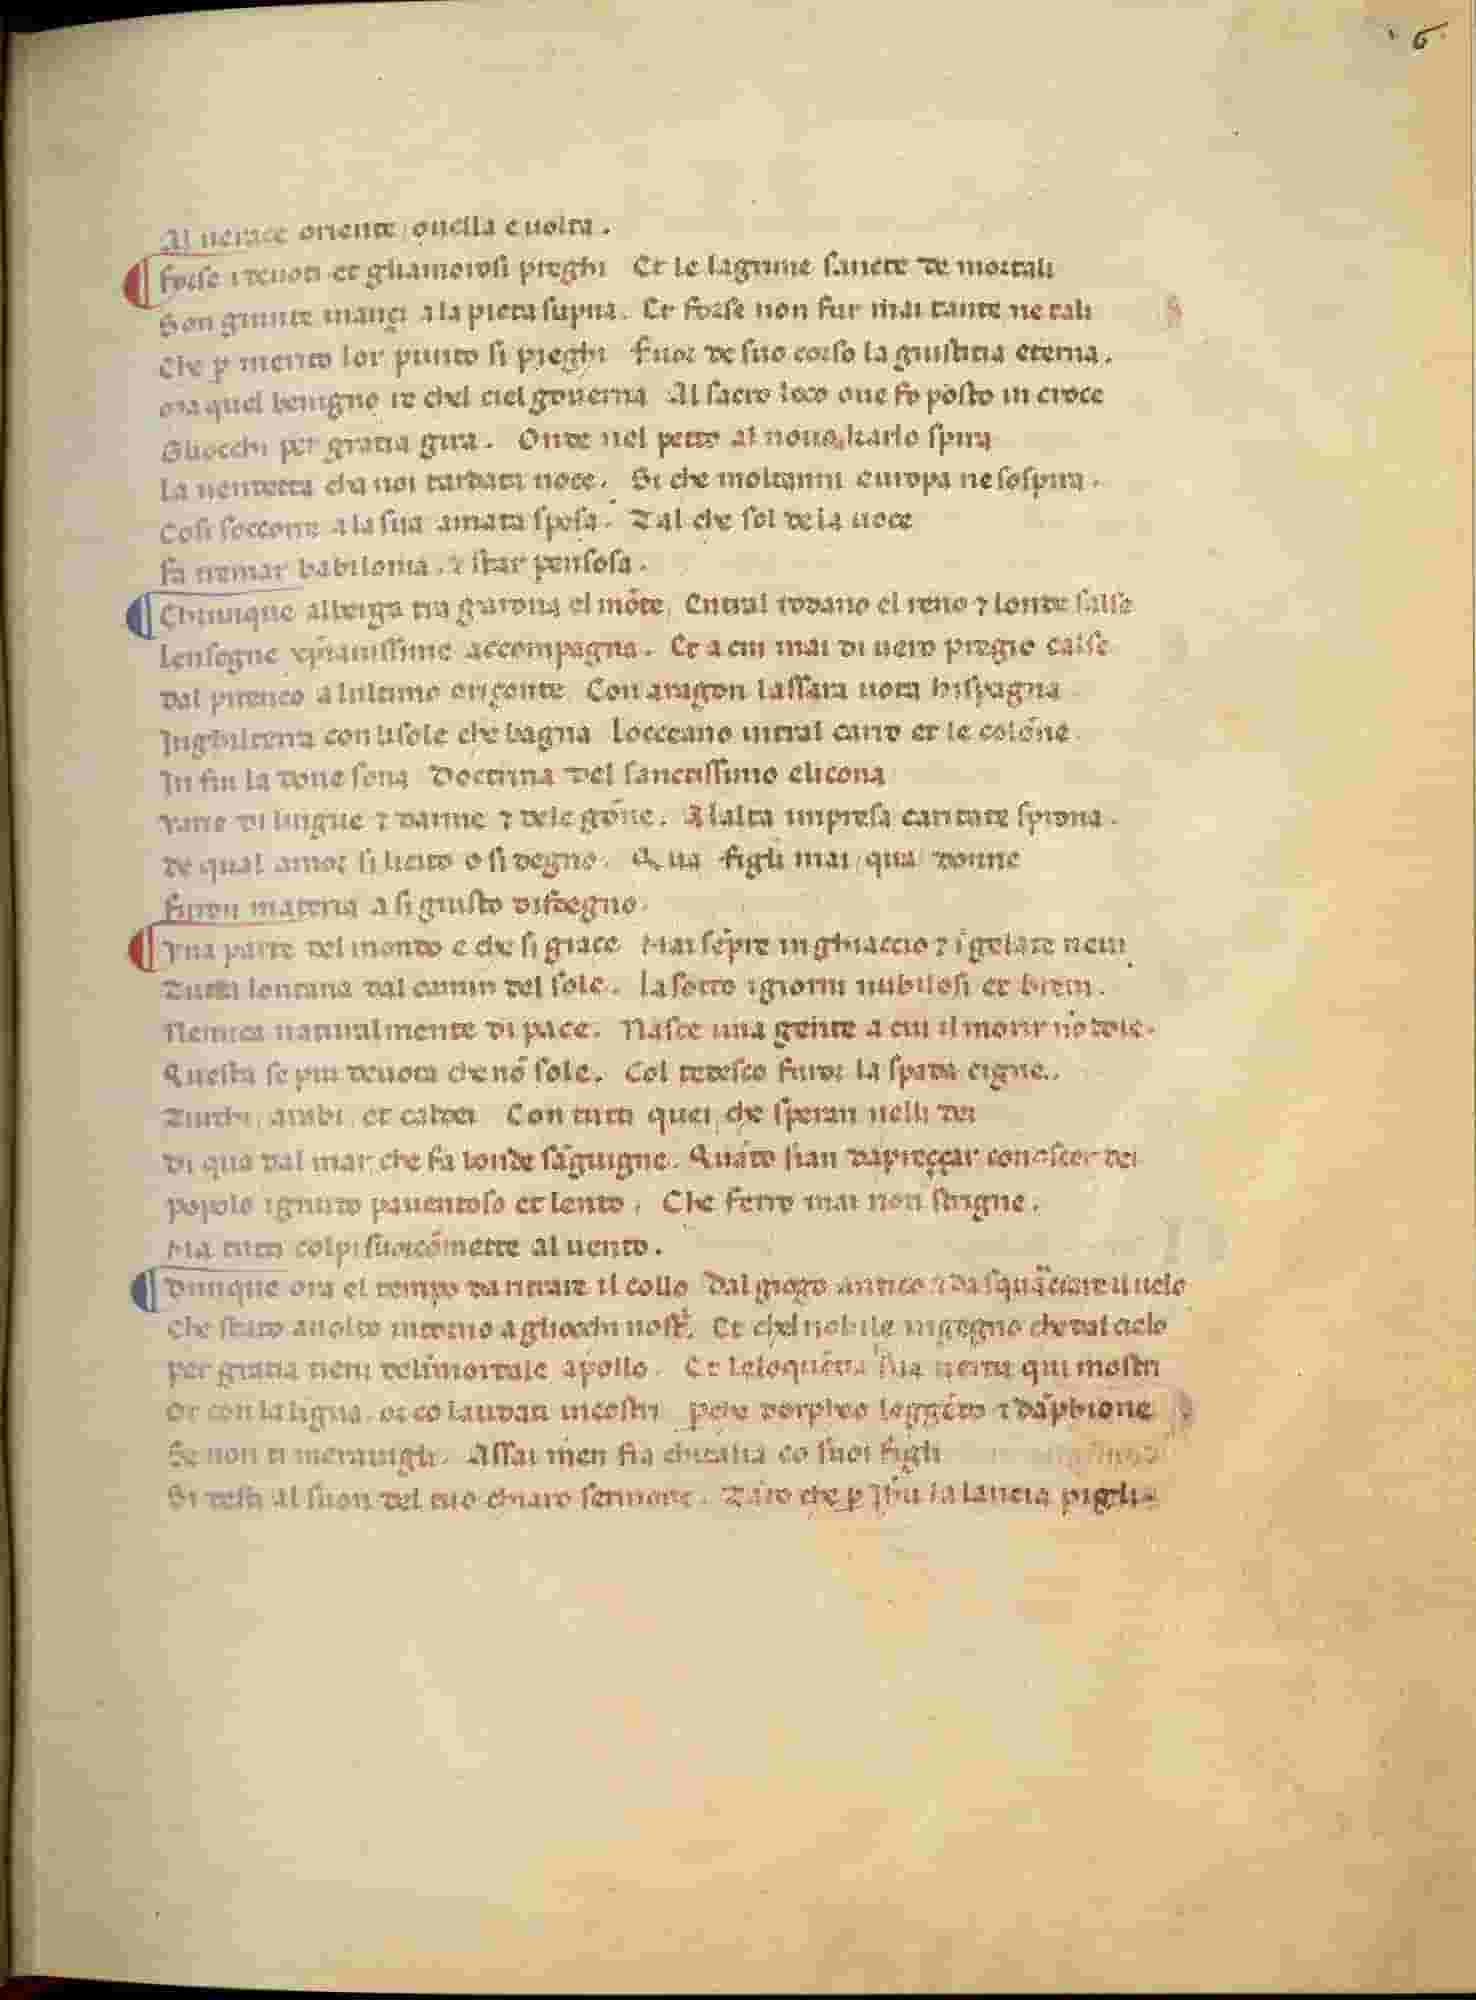 6
Al uerace oriente, ouella e uolta.
Forse i deuoti et gliamorosi preghi Et le lagrime sancte de mortali
Son giunte inançi a la pieta supna. Et forse non fur mai tante ne tali
Che p merito lor punto si pieghi fuor de suo corso la giustitia eterna.
Ma quel benigno re chel ciel gouerna Al sacro loco oue fo posto in croce
Gliocchi per gratia gira. Onde nel petto al nouo karlo spira
La uendetta cha noi tardata noce. Si che moltanni europa ne sospira.
Cosi soccorre a la sua amata sposa. Tal che sol de la uoce
fa tremar babilonia, ⁊ star pensosa.
Chiunque alberga tra garona el mōte, Entral rodano el reno ⁊ londe salse
Lensegne xp̄ianissime accompagna. Et a cui mai di uero pregio calse
Dal pireneo a lultimo oriçonte Con aragon lassara uota hispagna
Inghilterra con lisole che bagna Locceano intral carro et le colōne.
In fin la doue sona Doctrina del sanctissimo elicona
Varie di lingue ⁊ darme ⁊ dele gōne. A lalta impresa caritate sprona.
De qual amor si licito o si degno. Qua figli mai, qua donne
Furon materia a si giusto disdegno.
Vna parte del mondo e che si giace Mai sēpre in ghiaccio ⁊ ī gelate neui
Tutta lontana dal camin del sole. La sotto i giorni nubilosi et breui.
Nemica naturalmente di pace. Nasce una gente a cui il morir nō dole.
Questa se piu deuota che nō sole. Col tedesco furor la spada cigne.
Turchi, arabi, et caldei Con tutti quei che speran nelli dei
Di qua dal mar che fa londe sāguigne. Quāto sian dapreççar conoscer dei
popolo ignudo pauentoso et lento, Che ferro mai non strigne.
Ma tutti colpi suoi cōmette al uento.
Dunque ora el tempo da ritrare il collo Dal giogo antico ⁊ da squarciare il uelo
Che stato auolto intorno agliocchi nostri. Et chel nobile ingegno che dal cielo
per gratia tieni delīmortale apollo. Et leloquētia sua uertu qui mostri
Or con la ligua, or co laudati incostri pche dorpheo leggēdo ⁊ dāphione
Se non ti merauigli. Assai men fia chitalia co suoi figli
Si desti al suon del tuo chiaro sermone. Tāto che p Ihu la lancia pigli.